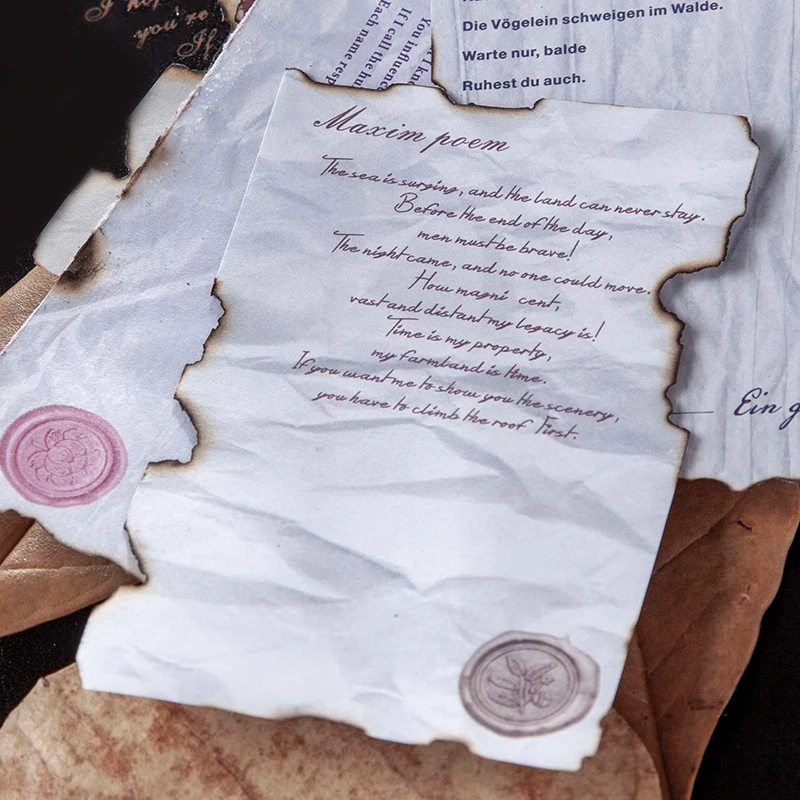 you're
If
If I call the hu
You influenc
Each name resp
Die Vögelein schweigen im Walde.
Warte nur, balde
Ruhest du auch.
Maxim poem
The sea is surging, and the land can never stay.
Before the end of the day,
men must be brave!
The night came, and no one could move.
How magni cent,
vast and distant my legacy is!
Time is my property,
my farmland is time.
If you want me to show you the scenery,
you have to climb the roof first.
— Ein g